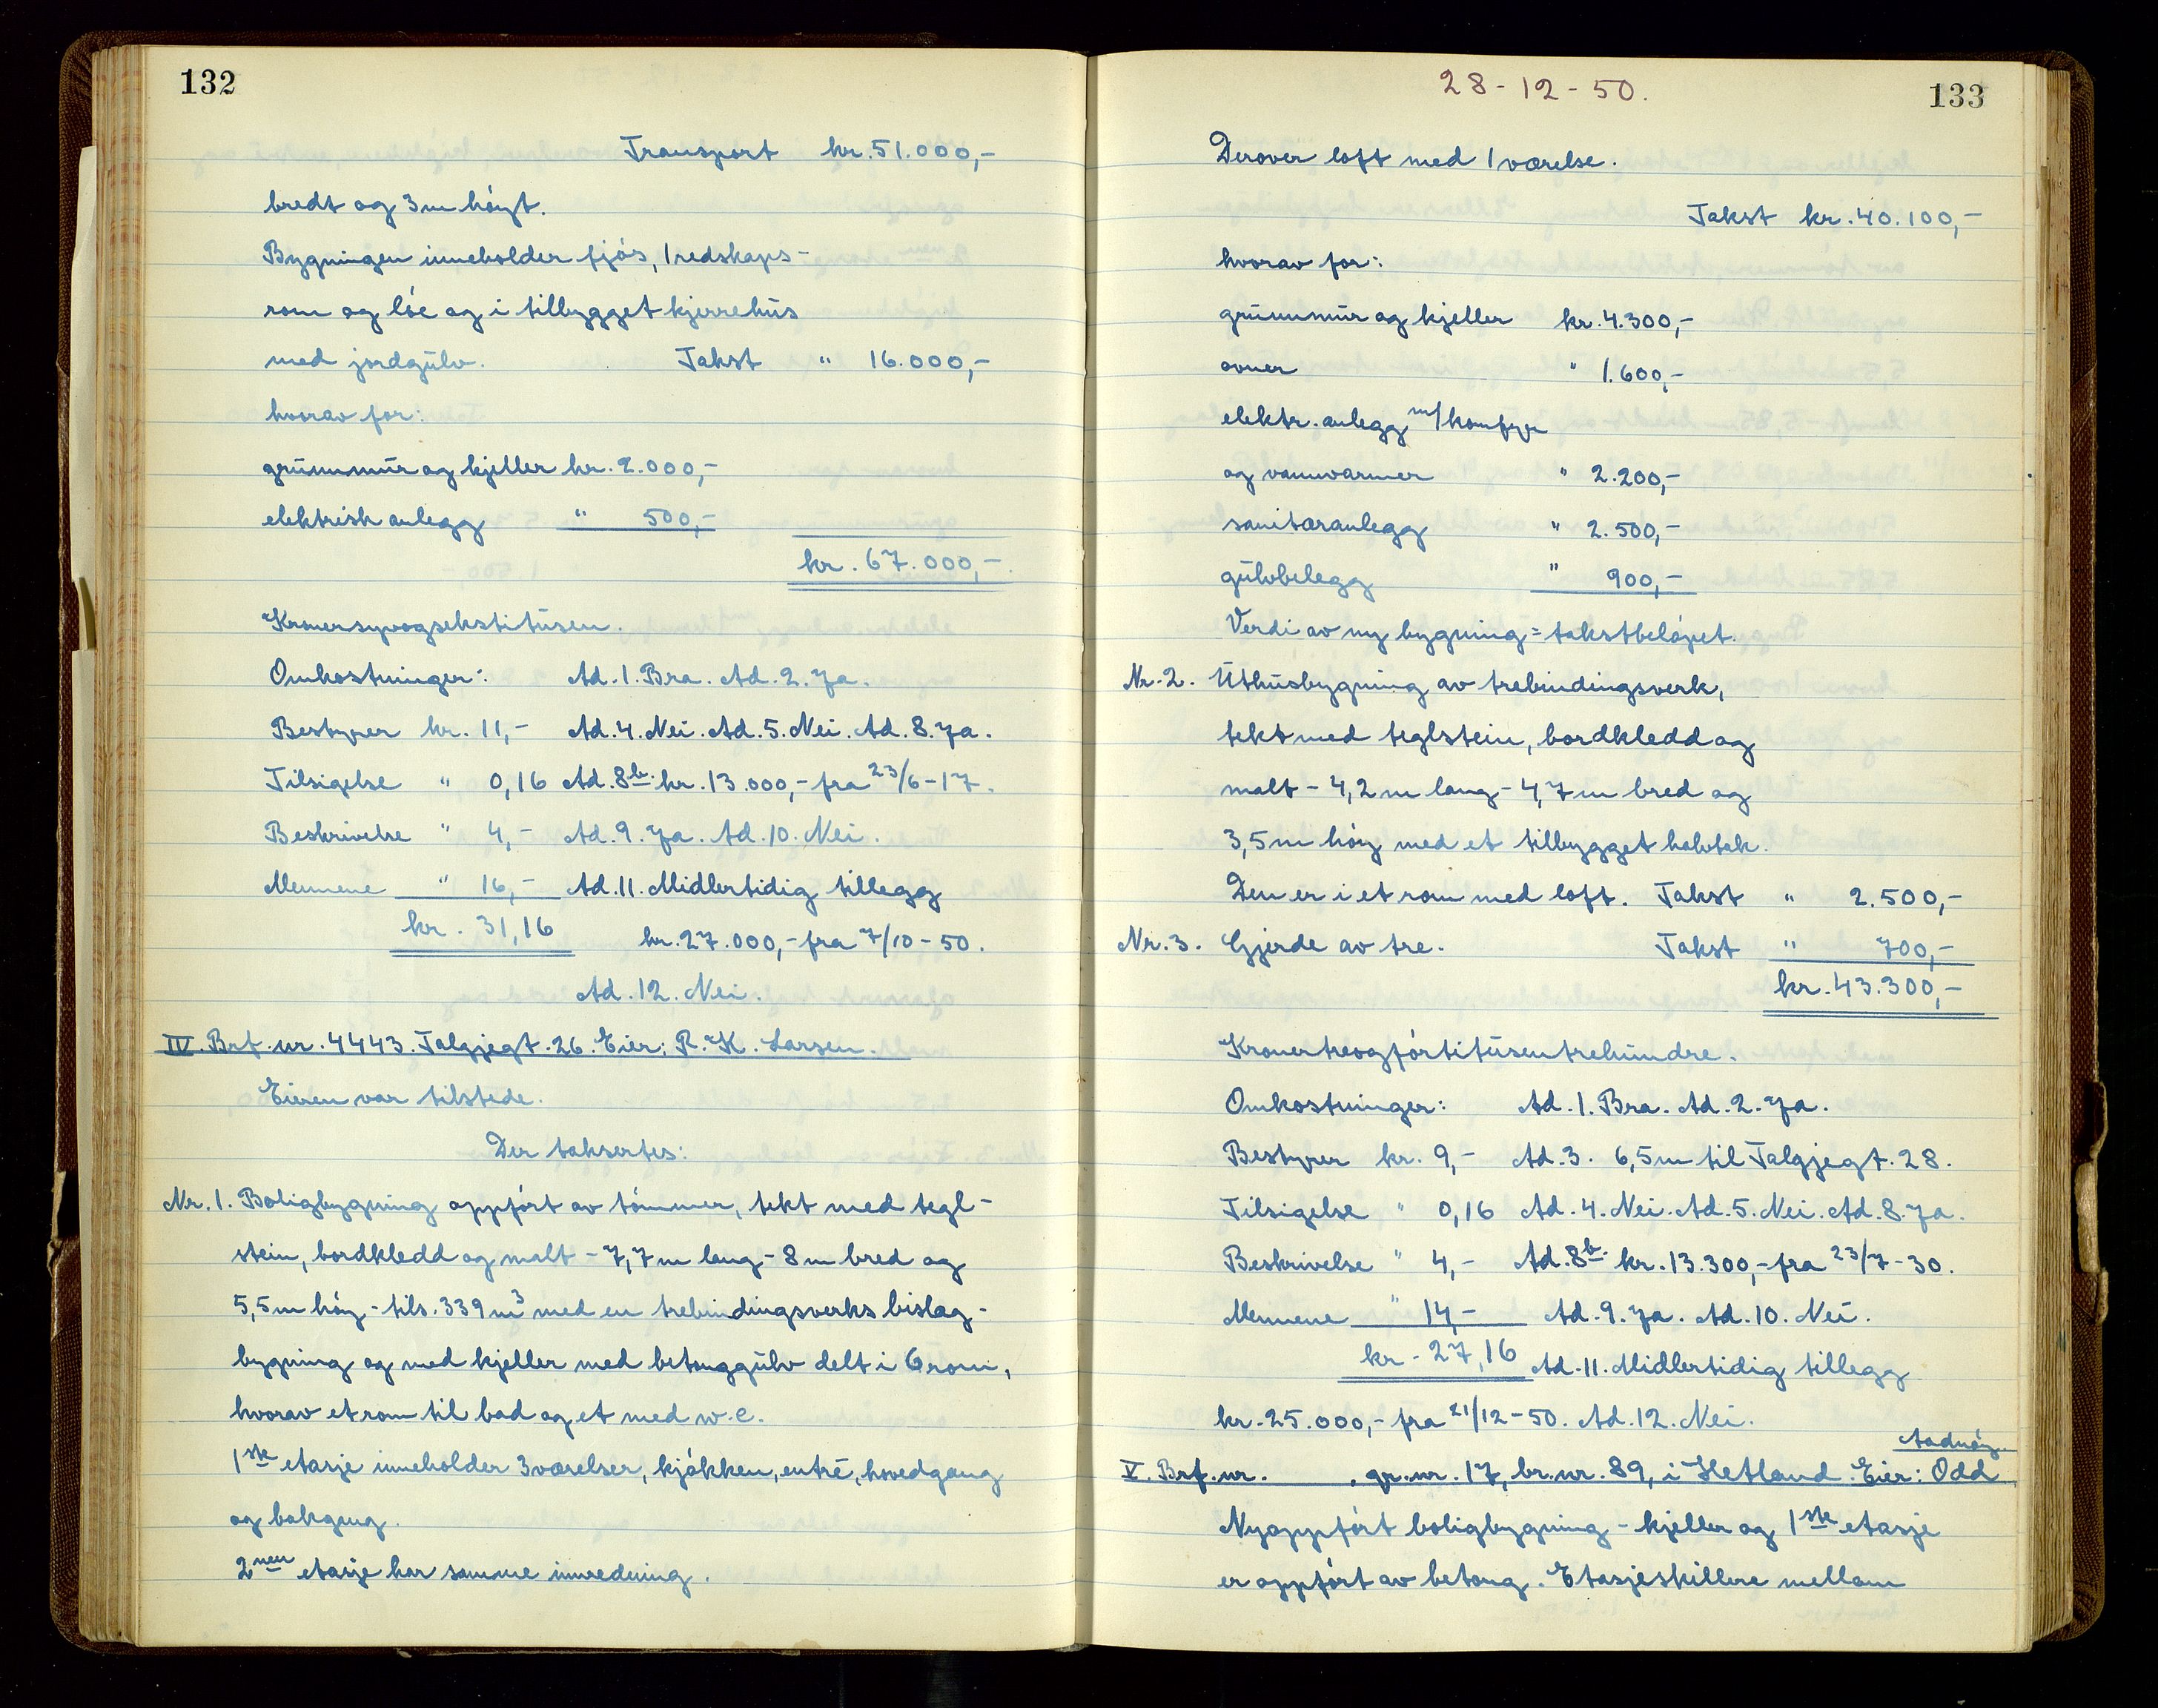 132
Transport kr. 51.000,-
bredt og 3 m höyt.
Bygningen inneholder fjós, 1 redskaps-
rom og lóe og i tilbygget kjerrehus
med jordgulv. Takst " 16.000,-
hvorav for:
grunnmur og kjeller kr. 2.000,-
elektrisk anlegg " 500,-
kr. 67.000,-
Kronersyvogsekstitusen.
Omkostninger: Ad. 1. Bra. Ad. 2. Ja.
Bestyrer kr. 11,- Ad. 4. Nei. Ad. 5. Nei. Ad. 8. Ja.
Tilsigelse " 0,16 Ad. 8b. kr. 13.000,- fra 23/6-17.
Beskrivelse " 4,- Ad. 9. Ja. Ad. 10. Nei.
Mennene " 16,- Ad. 11. Midlertidig tillegg
kr. 31,16 kr. 27.000,- fra 7/10-50.
Ad. 12. Nei.
IV. Brf. nr. 4443. Talgjegt. 26. Eier: R. K. Larsen.
Eieren var tilstede.
Der taksertes:
Nr. 1. Boligbygning oppfört av tömmer, tekt med tegl-
stein, bordkledd og malt - 7,7 m lang - 8 m bred og
5,5 m höy - tils. 339 m3 med en trebindingsverks bislag-
bygning og med kjeller med betonggulv delt i 6 rom,
hvorav et rom til bad og et med w.c.
1ste etasje inneholder 3 værelser, kjökken, entré, hovedgang
og bakgang.
2nen etasje har samme innredning.
28-12-50.
133
Derover loft med 1 værelse.
Takst kr. 40.100,-
hvorav for:
grunnmur og kjeller kr. 4.300,-
ovner " 1.600,-
elektr. anlegg m/komfyr
og vannvarmer " 2.200,-
sanitæranlegg " 2.500,-
gulvbelegg " 900,-
Verdi av ny bygning = takstbelöpet.
Nr. 2. Uthusbygning av trebindingsverk,
tekt med teglstein, bordkledd og
malt - 4,2 m lang - 4,7 m bred og
3,5 m höy med et tilbygget halvtak.
Den er i et rom med loft. Takst " 2.500,-
Nr. 3. Gjerde av tre. Takst " 700,-
kr. 43.300,-
Kronertreogförtitusentrehundre.
Omkostninger: Ad. 1. Bra. Ad. 2. Ja.
Bestyrer kr. 9,- Ad. 3. 6,5 m til Talgjegt. 28.
Tilsigelse " 0,16 Ad. 4. Nei. Ad. 5. Nei. Ad. 8. Ja.
Beskrivelse " 4,- Ad. 8b. kr. 13.300,- fra 23/7-30.
Mennene " 14,- Ad. 9. Ja. Ad. 10. Nei.
kr. 27,16 Ad. 11. Midlertidig tillegg
kr. 25.000,- fra 21/12-50. Ad. 12. Nei.
Aadnöy.
V. Brf. nr. , gr. nr. 17, br. nr. 89, i Hetland. Eier: Odd
Nyoppfört boligbygning - kjeller og 1ste etasje
er oppfört av betong. Etasjeskillere mellom